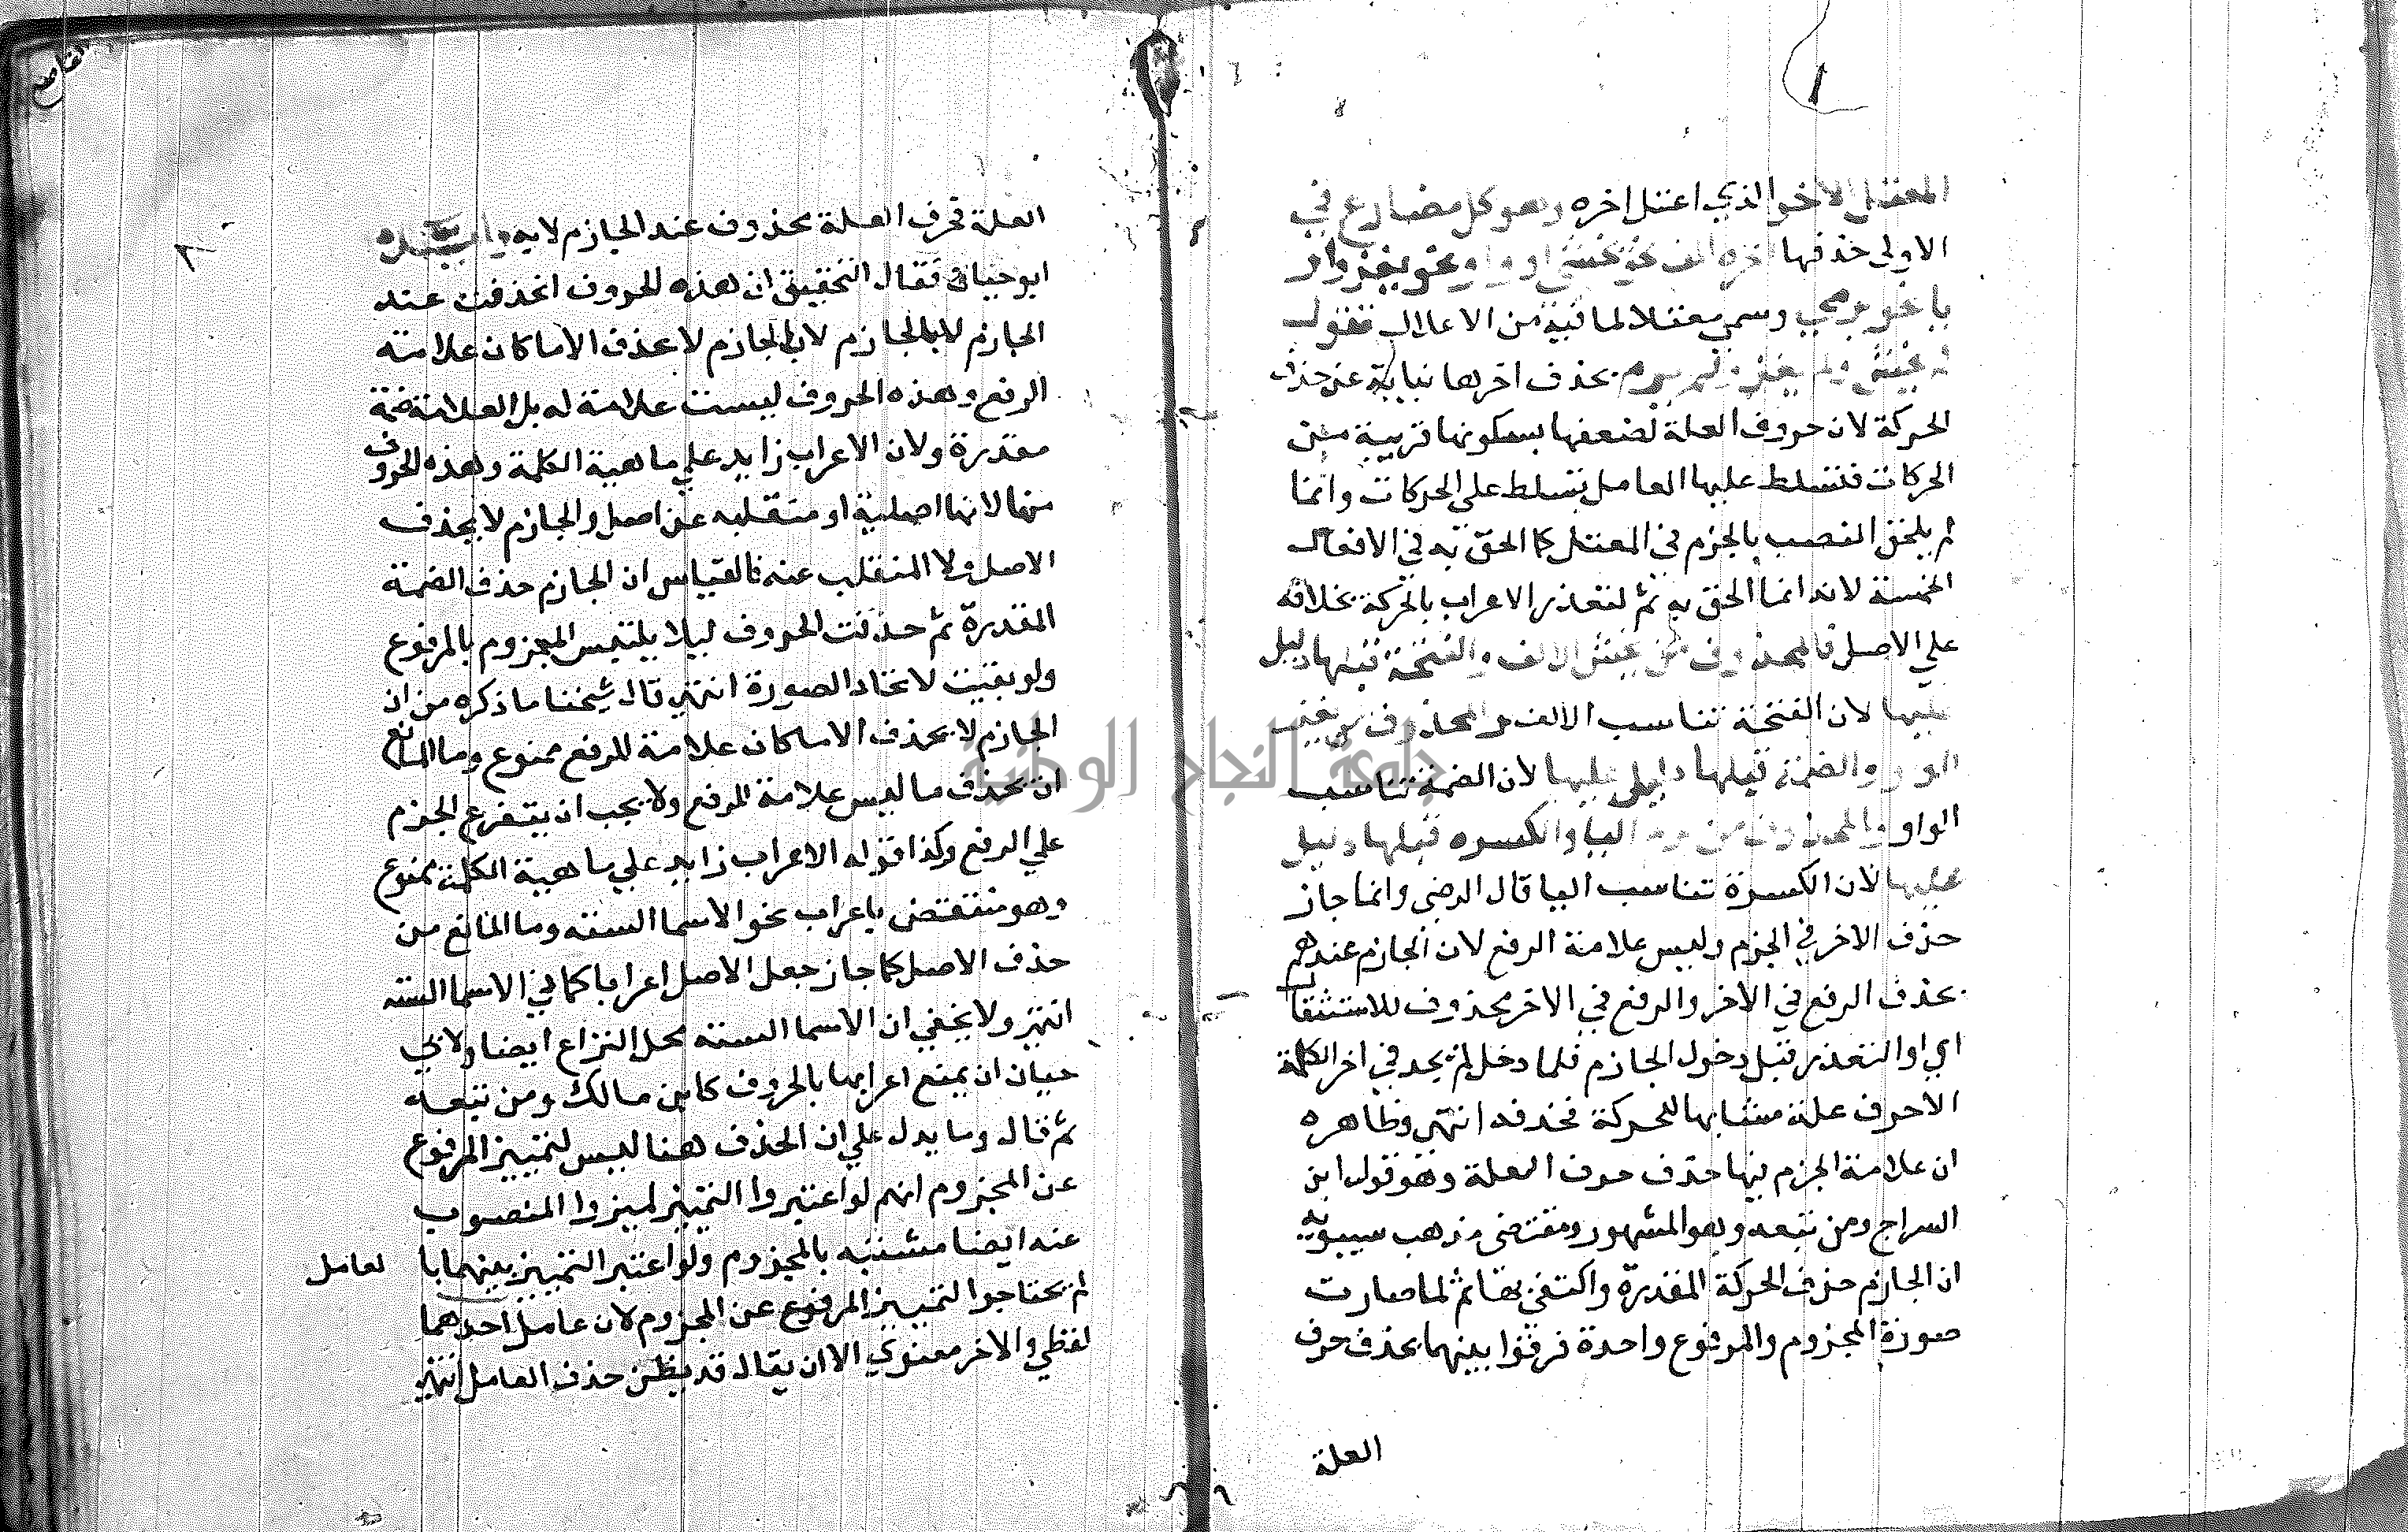 ١
المعتل الاخر الذي اعتل اخره وهو كل مضارع في
الاولى حذفها اخره الف نحو يخشى او واو نحو يغزو او
يا نحو يرمي وسمي معتلا لما فيه من الاعلال تقول
لم يخش ولم يغز ولم يرم بحذف اخرها نيابة عن حذف
الحركة لان حروف العلة لضعفها بسكونها قريبة من
الحركات فتسلط عليها العامل تسلط على الحركات وانما
لم يلحق النصب بالجزم في المعتل كما الحق به في الافعال
الخمسة لانه انما الحق به ثم لتعذر الاعراب بالحركة بخلافه
علي الاصل فالمحذوف من يخش الالف والفتحة قبلها دليل
عليها لان الفتحة تناسب الالف والمحذوف من يغز
الواو والضمة قبلها دليل عليها لان الضمة تناسب
الواو والمحذوف من يرم اليا والكسره قبلها دليل
عليها لان الكسرة تناسب اليا قال الرضي وانما جاز
حذف الاخر في الجزم وليس علامة الرفع لان الجازم عندهم
يحذف الرفع في الاخر والرفع في الاخر محذوف للاستثقال
اي او التعذر قبل دخول الجازم فلما دخل لم يجد في اخر الكلمة
الا حرف علة مشابها للحركة فحذفه انتهى وظاهره
ان علامة الجزم فيها حذف حرف العلة وهو قول ابن
السراج ومن تبعه وهو المشهور ومقتضى مذهب سيبويه
ان الجازم حذف الحركة المقدرة واكتفى بها ثم لما صارت
صورة المجزوم والمرفوع واحدة فرقوا بينهما بحذف حرف
العلة
٢
العلة فحرف العلة محذوف عند الجازم لا به
ابو حيان فقال التحقيق ان هذه الحروف انحذفت عند
الجازم لا بالجازم لان الجازم لا يحذف الا ما كان علامته
الرفع وهذه الحروف ليست علامة له بل العلامة ضمة
مقدرة ولان الاعراب زايد علي ماهية الكلمة وهذه الحروف
منها لانها اصلية او منقلبه عن اصل والجازم لا يحذف
الاصل ولا المنقلب عنه فالقياس ان الجازم حذف الضمة
المقدرة ثم حذفت الحروف ليلا يلتبس المجزوم بالمرفوع
ولو بقيت لاتحاد الصورة انتهى قال شيخنا ما ذكره من ان
الجازم لا يحذف الا ما كان علامة للرفع ممنوع وما المانع
ان يحذف ما ليس علامة للرفع ولا يجب ان يتفرع الجزم
علي الرفع وكذا قوله الاعراب زايد علي ماهية الكلمة ممنوع
وهو منتقض باعراب نحو الاسما السته وما المانع من
حذف الاصل كما جاز جعل الاصل اعرابا كما في الاسما السته
انتهى ولا يخفي ان الاسما السته محل النزاع ايضا ولابي
حيان ان يمنع اعرابها بالحروف كابن مالك ومن تبعه
ثم قال وما يدل علي ان الحذف هنا ليس لتمييز المرفوع
عن المجزوم انهم لو اعتبروا التمييز لميزوا المنصوب
عنه ايضا مشتبه بالمجزوم ولو اعتبر التمييز بينهما با لعامل
لم يحتاجوا لتمييز المرفوع عن المجزوم لان عامل احدهما
لفظي والاخر معنوي الا ان يقال قد يظن حذف العامل انتهى
جامعة النجاح الوطنية